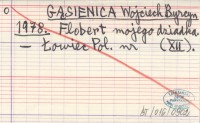 GĄSIENICA Wojciech Byrcyn
1978. Flobert mojego dziadka
— Łowiec Pol. nr (XII).